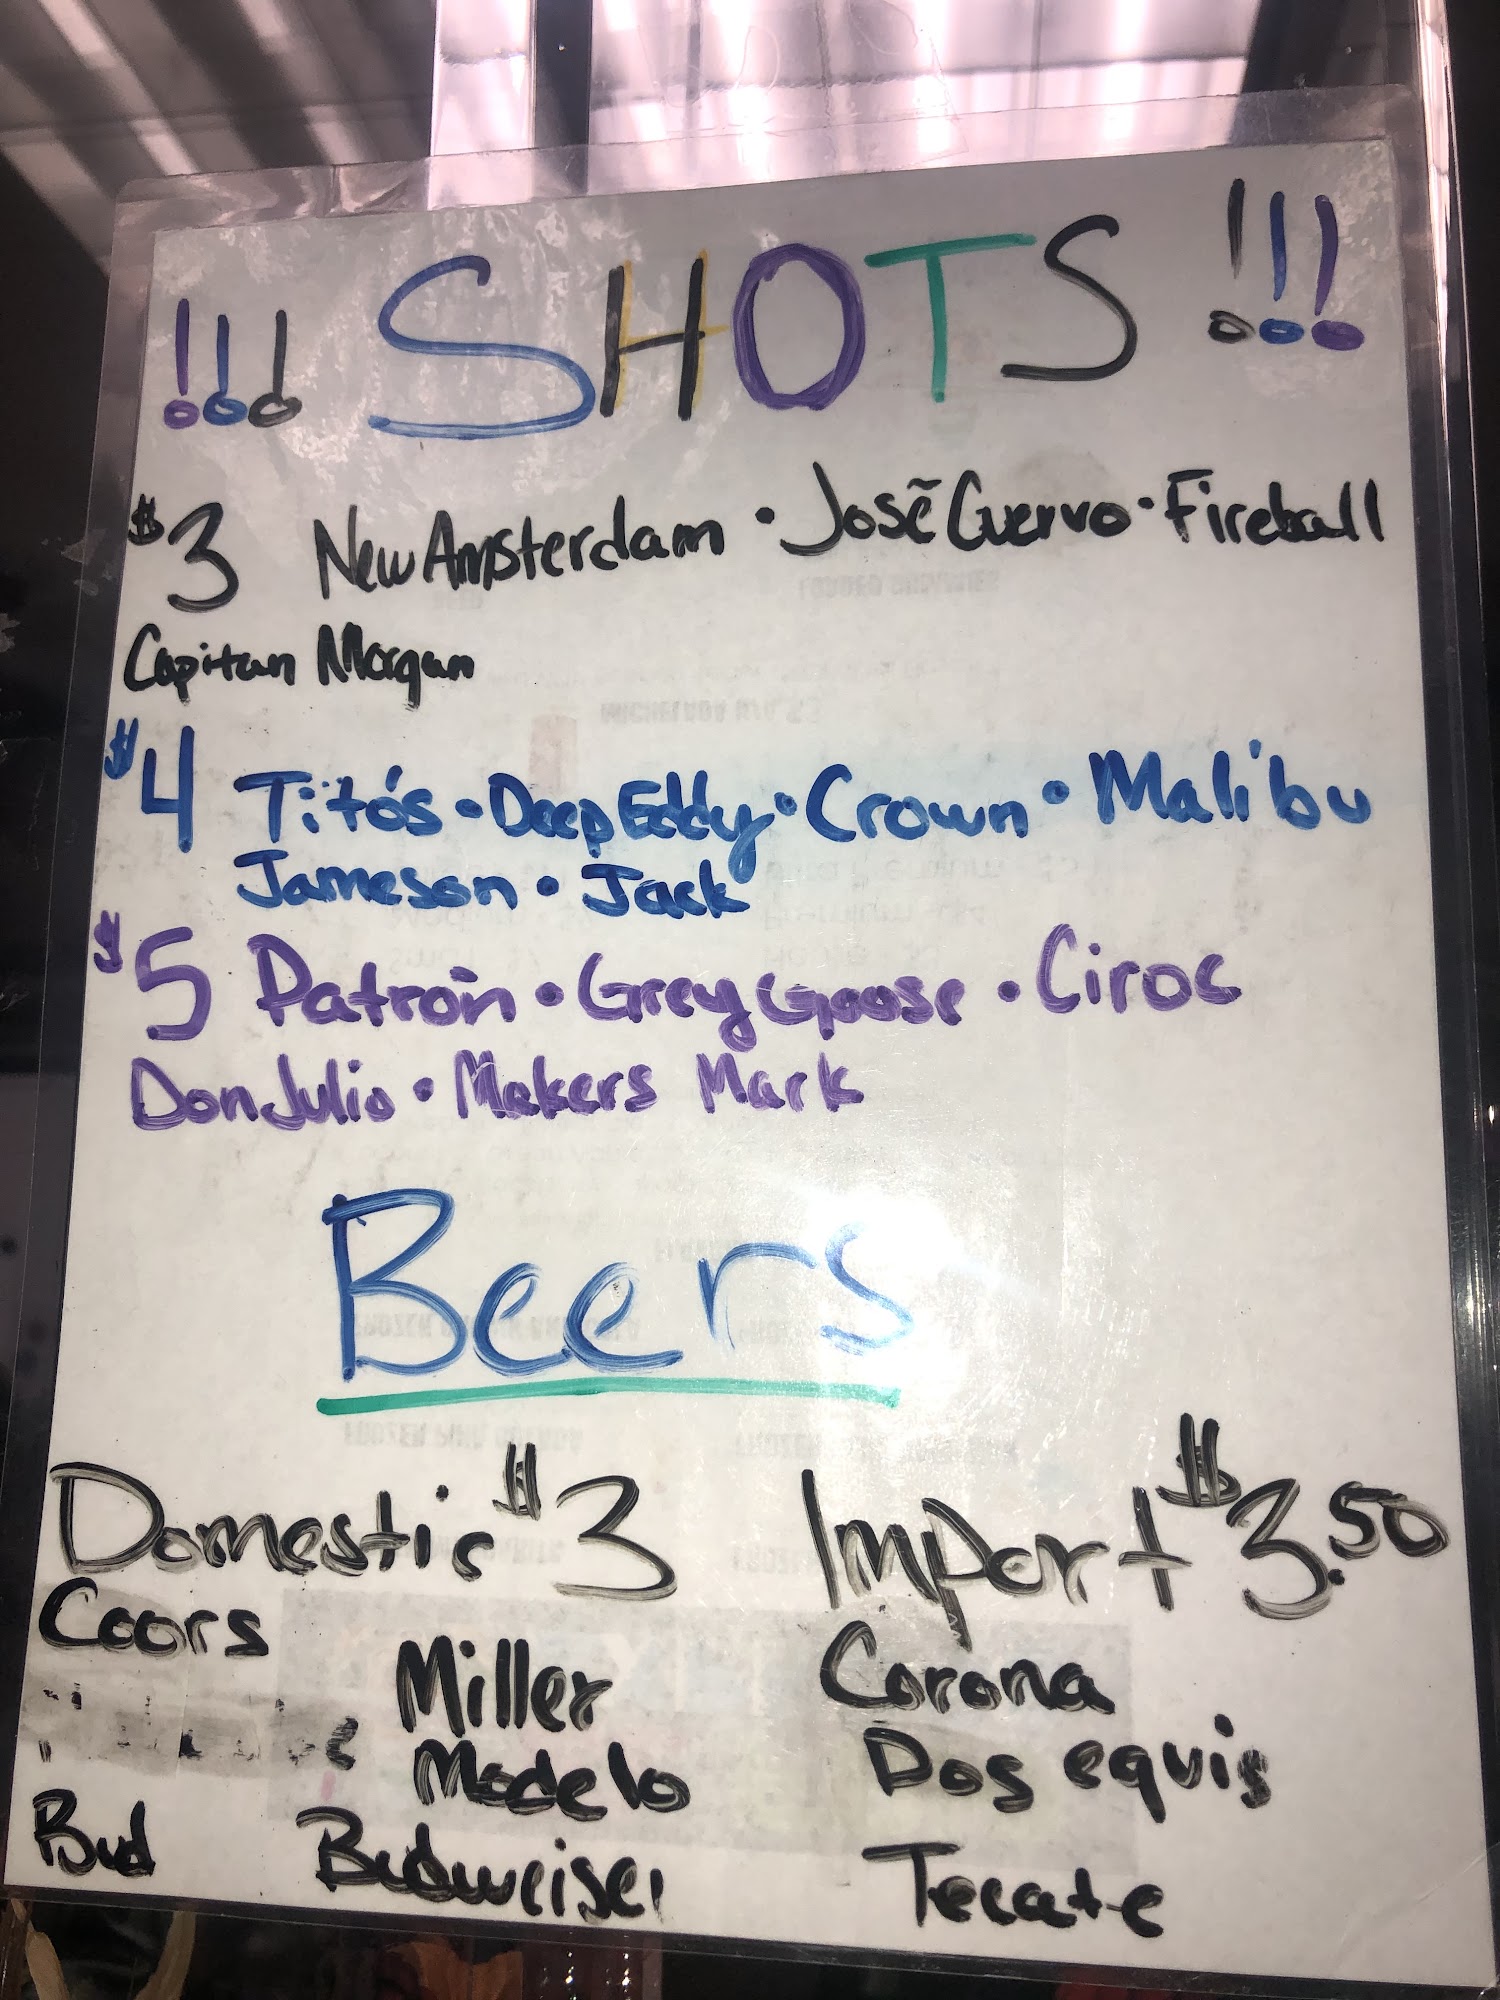 !!! SHOTS !!!
$3 New Amsterdam • José Cuervo • Fireball
Capitan Morgan
$4 Tito's • Deep Eddy • Crown • Malibu
Jameson • Jack
$5 Patrón • Grey Goose • Ciroc
Don Julio • Makers Mark
Beers
Domestic $3
Coors
Miller
Modelo
Bud
Budweiser
Import $3.50
Corona
Dos equis
Tecate